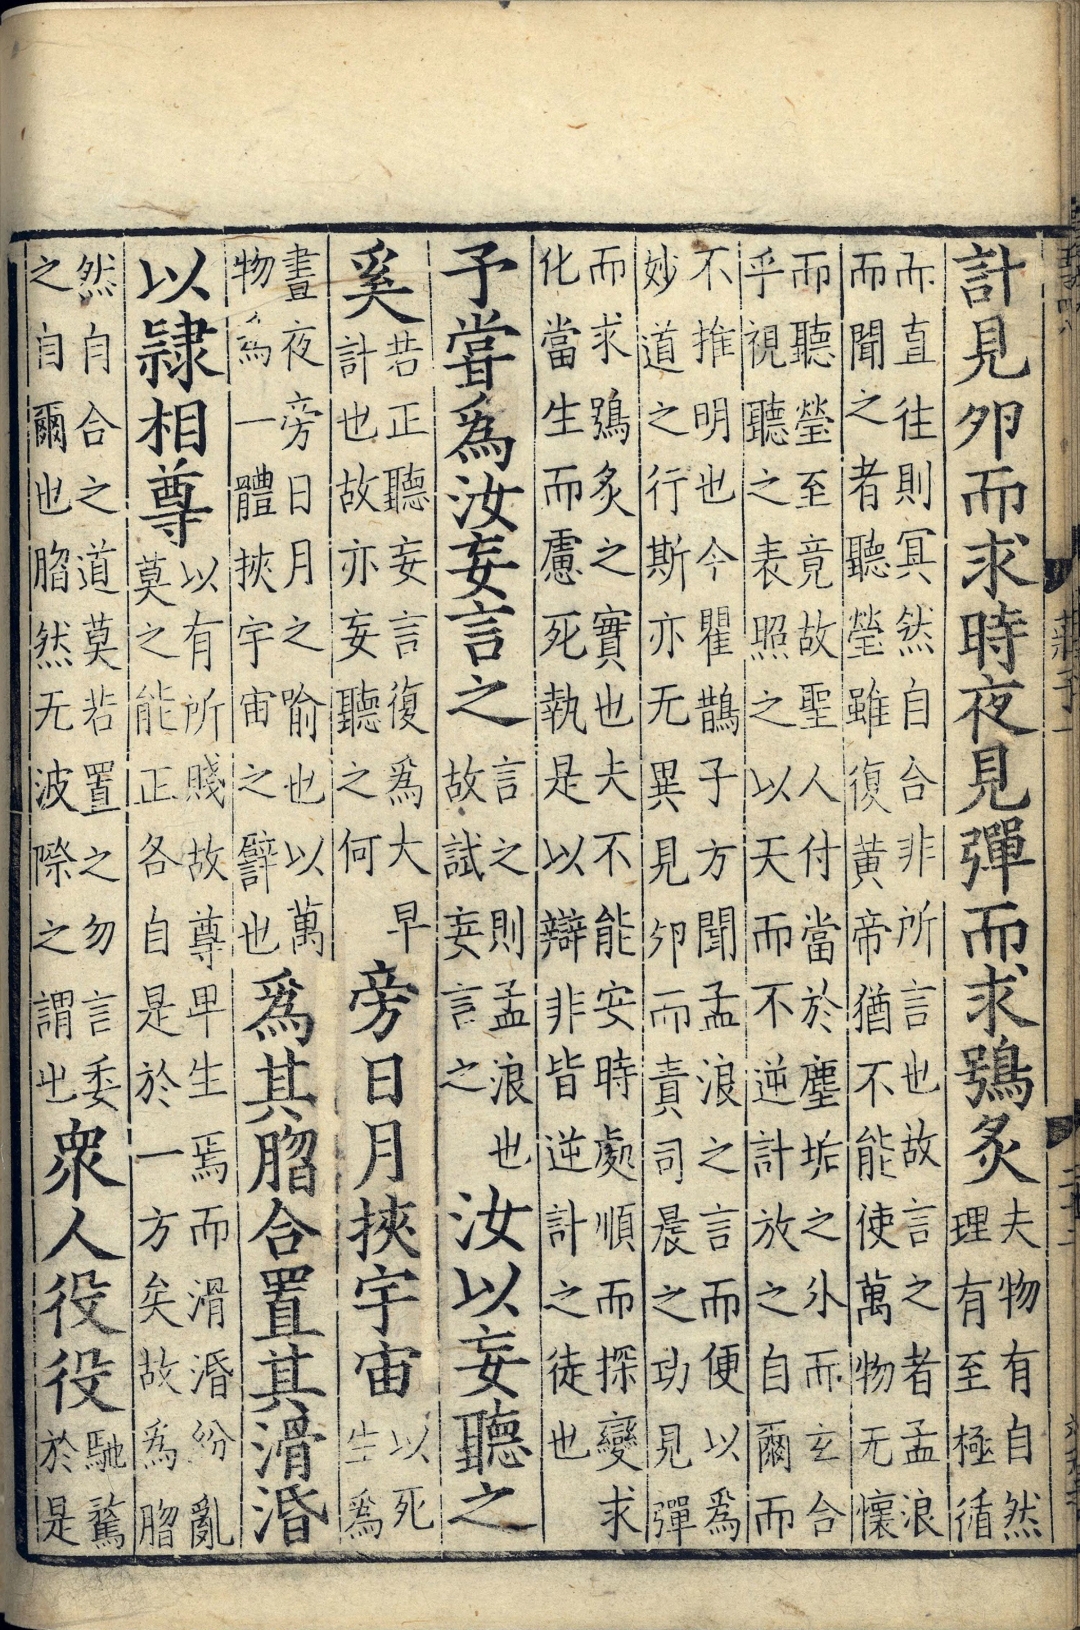 計見卵而求時夜見彈而求鴞炙夫物有自然理有至極循
而直往則冥然自合非所言也故言之者孟浪
而聞之者聽瑩雖復黄帝猶不能使萬物无懷
而聽瑩至竟故聖人付當於塵垢之外而玄合
乎視聽之表照之以天而不逆計放之自爾而
不推明也今瞿鵲子方聞孟浪之言而便以為
妙道之行斯亦无異見卵而責司晨之功見彈
而求鴞炙之實也夫不能安時處順而探變求
化當生而慮死執是以辯非皆逆計之徒也
予嘗為汝妄言之言之則孟浪也故試妄言之汝以妄聽之
奚若正聽妄言復為大早計也故亦妄聽之何旁日月挾宇宙以死生為
晝夜旁日月之喻也以萬物為一體挾宇宙之譬也為其脗合置其滑涽
以隸相尊以有所賤故尊卑生焉而滑涽紛亂莫之能正各自是於一方矣故為脗
然自合之道莫若置之勿言委之自爾也脗然无波際之謂也衆人役役馳騖於是